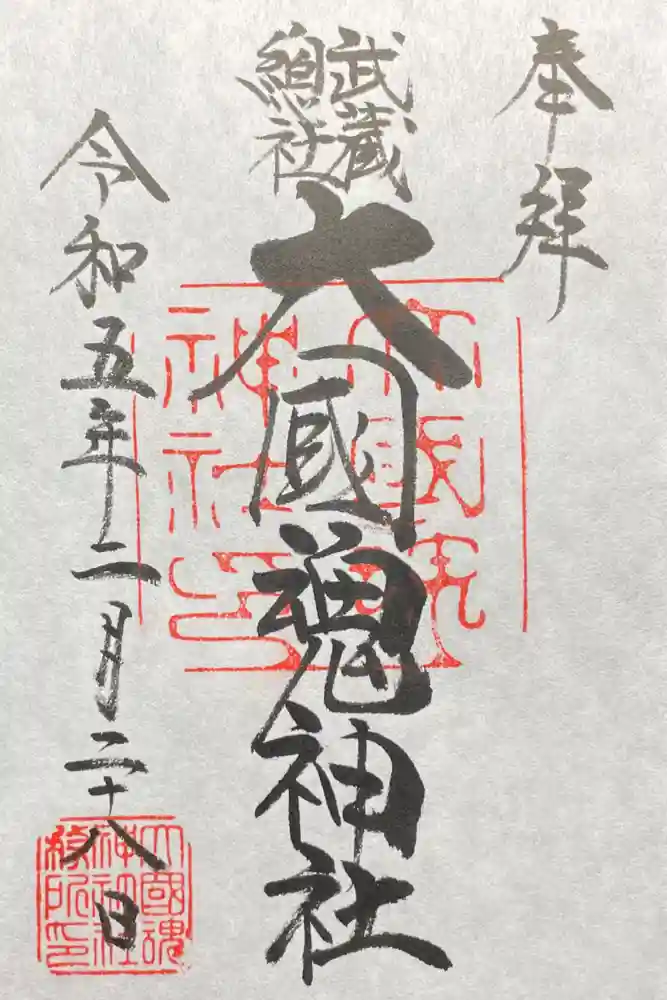 奉拝
武蔵
總社
大國魂神社
令和五年二月二十八日
大國魂
神社印
大國魂
神社